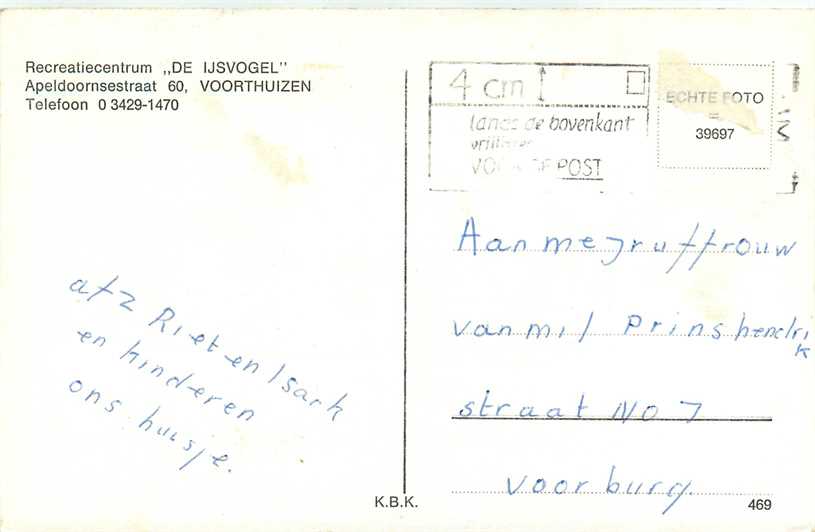 Recreatiecentrum „DE IJSVOGEL"
Apeldoornsestraat 60, VOORTHUIZEN
Telefoon 0 3429-1470
4 cm
langs de bovenkant
VOOR DE POST
ECHTE FOTO
39697
Aan mejruffrouw
van mil Prins hendrik
straat No 7
voorburg.
afz Riet en Isark
en kinderen
ons huisje.
K.B.K.
469